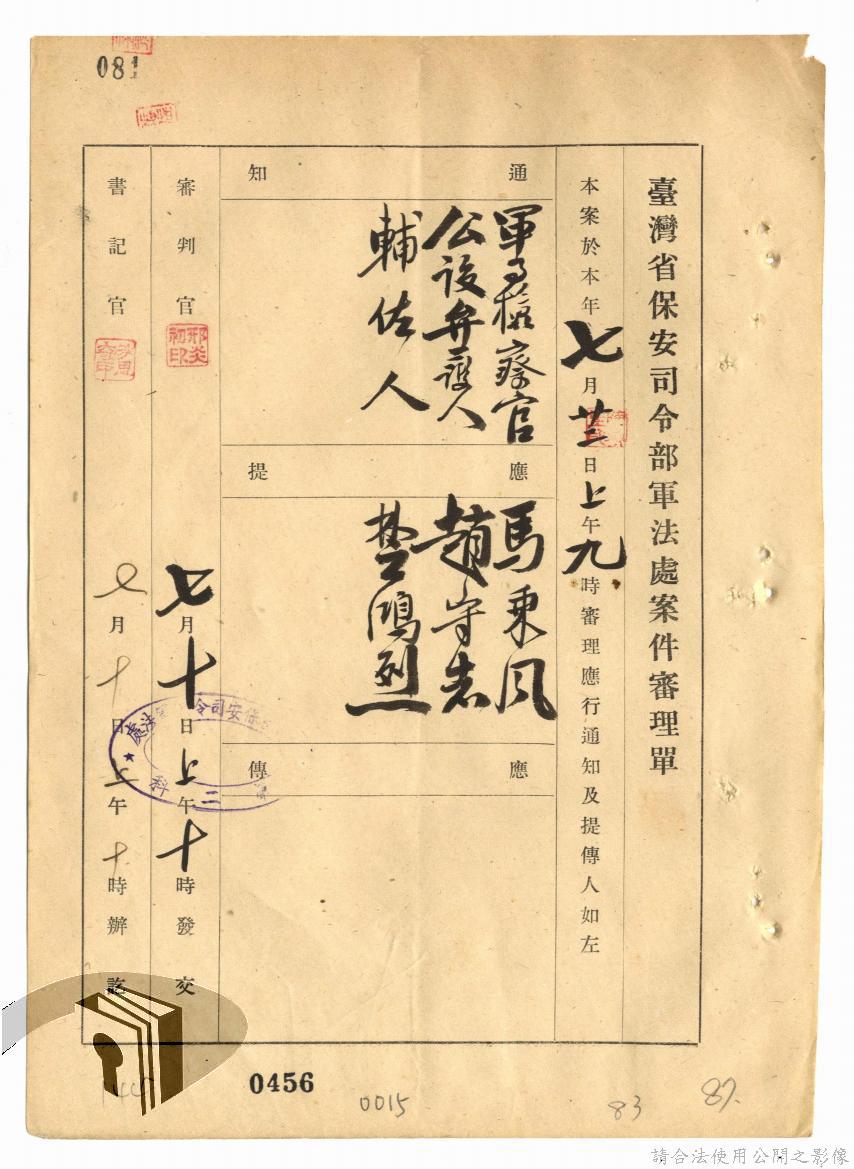 081
臺灣省保安司令部軍法處案件審理單
本案於本年七月廿三日上午九時審理應行通知及提傳人如左
通知
軍事檢察官
公設弁護人
輔佐人
應提
馬乘风
趙守志
楚鴻烈
應傳
審判官 邢炎初印 七月十日上午十時發交
書記官 七月十日上午十時辦訖
0456
0015
83
87.
請合法使用公開之影像